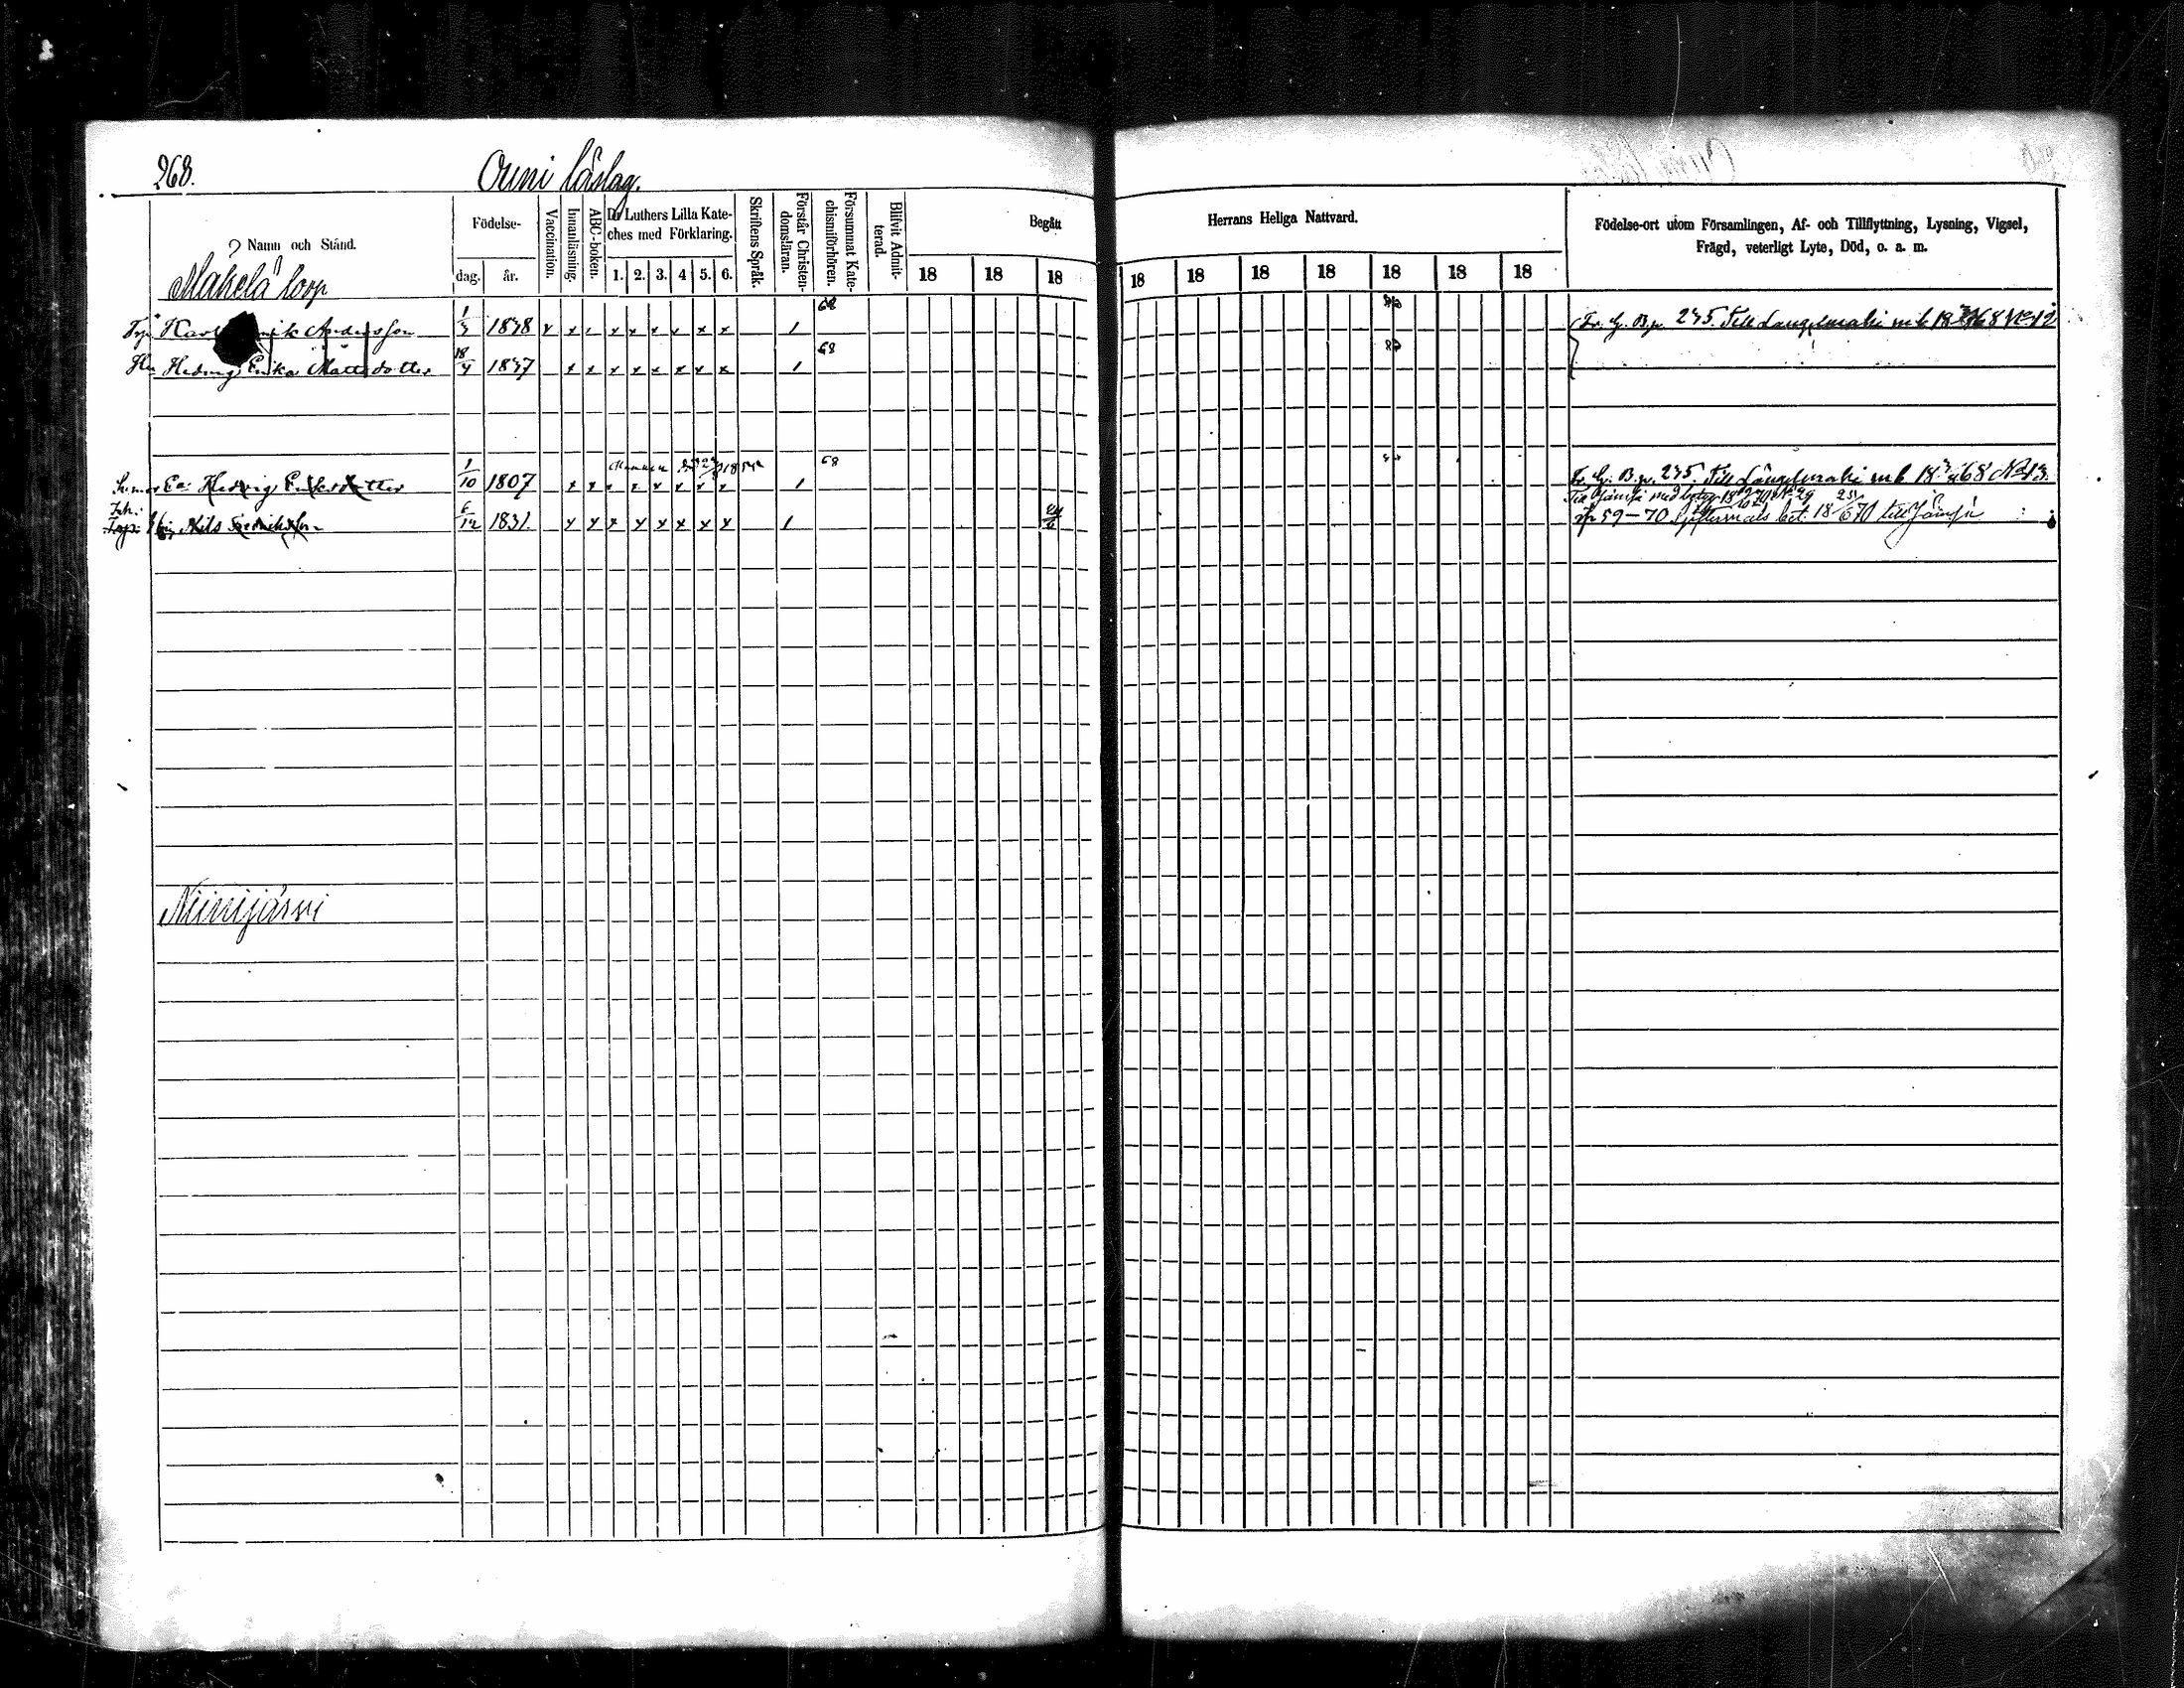 268.
Ouni läslag.
Namn och Stånd.
Födelse-
dag. år.
Vaccination.
Innanläsning.
ABC-boken.
Dr Luthers Lilla Kate-
ches med Förklaring.
1. 2. 3. 4 5. 6.
Skriftens Språk.
Förstår Christen-
domsläran.
Försummat Kate-
chismiförhören.
Blifvit Admit-
terad.
Begått
18 18 18
Herrans Heliga Nattvard.
18 18 18 18 18 18 18
Födelse-ort utom Församlingen, Af- och Tillflyttning, Lysning, Vigsel,
Frägd, veterligt Lyte, Död, o. a. m.
Mäkelä torp
Karl Andersson 1838 1 68 Fr. G. B. p. 235. Till Längelmäki
Hedvig Erika Mattsdotter 18/4 1837 1 68
Hedvig Eriksdotter 1/10 1807 1 68 Fr. G. B. p. 235. Till Längelmäki
Nils Fredriksson 6/12 1831 1 59-70 till Jämsä
Niinijärvi